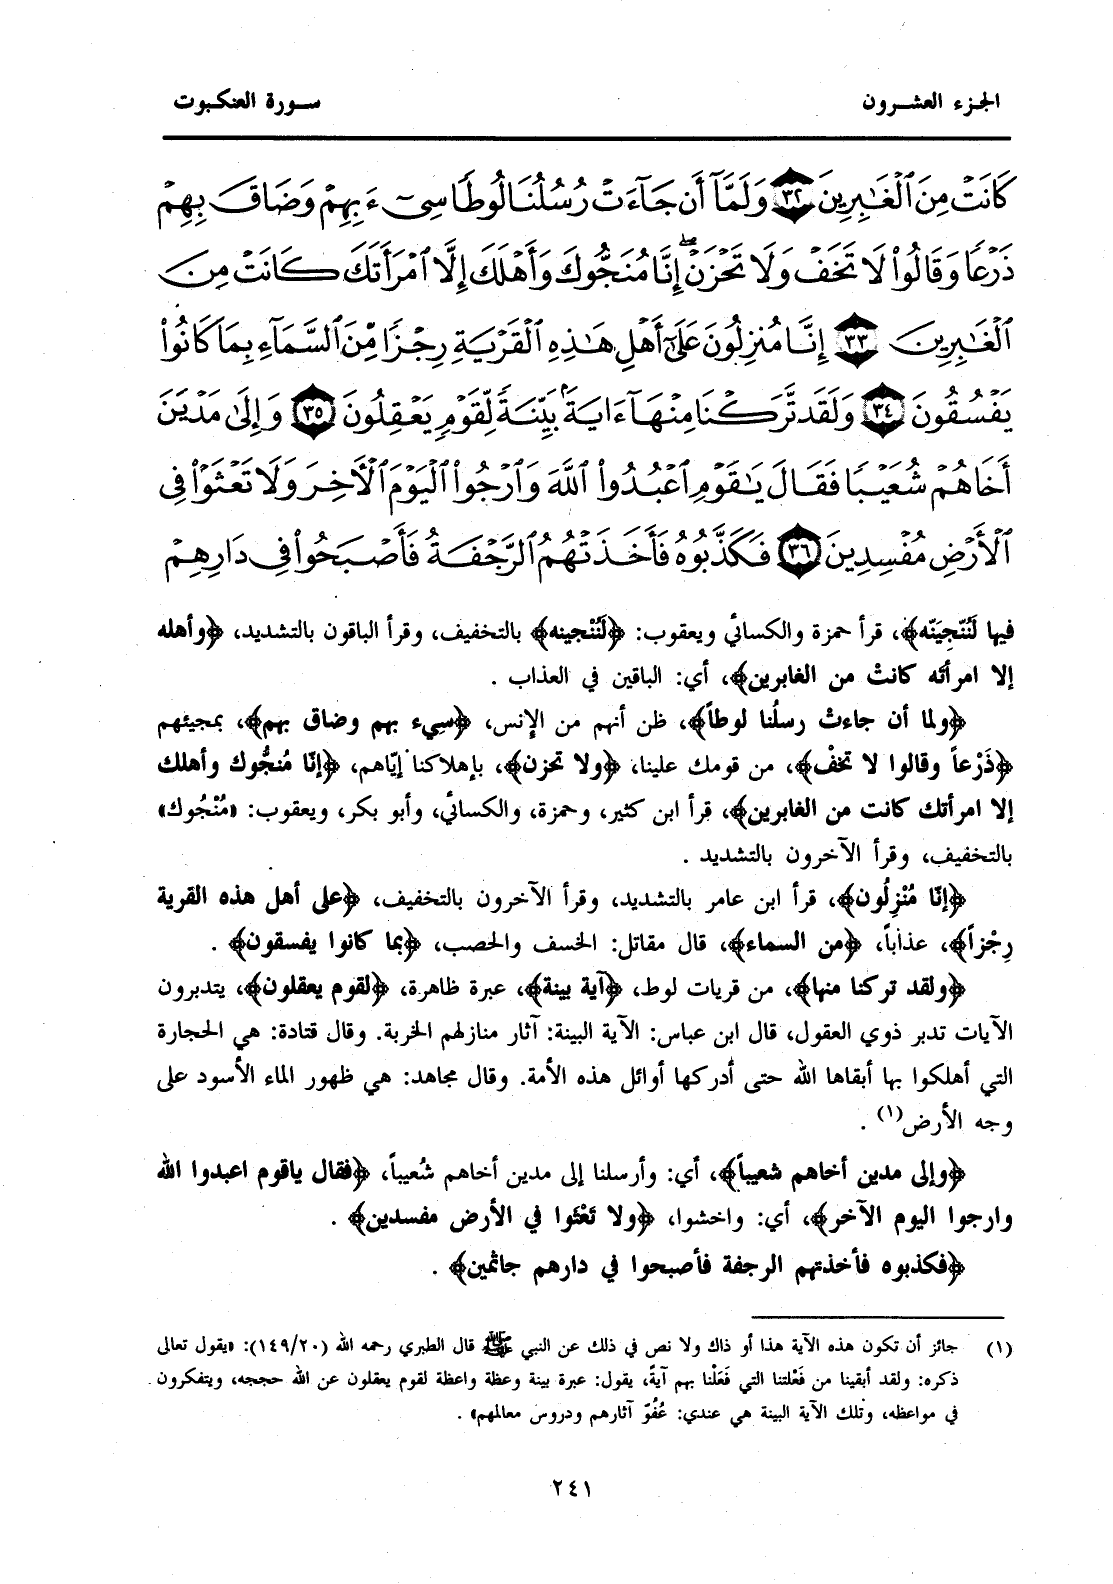 الجزء العشرون
سورة العنكبوت
كَانَتْ مِنَ ٱلْغَٰبِرِينَ ٣٢ وَلَمَّآ أَن جَآءَتْ رُسُلُنَا لُوطًا سِىٓءَ بِهِمْ وَضَاقَ بِهِمْ
ذَرْعًا وَقَالُوا۟ لَا تَخَفْ وَلَا تَحْزَنْ ۖ إِنَّا مُنَجُّوكَ وَأَهْلَكَ إِلَّا ٱمْرَأَتَكَ كَانَتْ مِنَ
ٱلْغَٰبِرِينَ ٣٣ إِنَّا مُنزِلُونَ عَلَىٰٓ أَهْلِ هَٰذِهِ ٱلْقَرْيَةِ رِجْزًا مِّنَ ٱلسَّمَآءِ بِمَا كَانُوا۟
يَفْسُقُونَ ٣٤ وَلَقَد تَّرَكْنَا مِنْهَآ ءَايَةًۢ بَيِّنَةً لِّقَوْمٍ يَعْقِلُونَ ٣٥ وَإِلَىٰ مَدْيَنَ
أَخَاهُمْ شُعَيْبًا فَقَالَ يَٰقَوْمِ ٱعْبُدُوا۟ ٱللَّهَ وَٱرْجُوا۟ ٱلْيَوْمَ ٱلْأَخِرَ وَلَا تَعْثَوْا۟ فِى
ٱلْأَرْضِ مُفْسِدِينَ ٣٦ فَكَذَّبُوهُ فَأَخَذَتْهُمُ ٱلرَّجْفَةُ فَأَصْبَحُوا۟ فِى دَارِهِمْ
فيها لَنُنَجِيَنّه﴾، قرأ حمزة والكسائي ويعقوب: ﴿لَنُنْجينه﴾ بالتخفيف، وقرأ الباقون بالتشديد، ﴿وأهله
إلا امرأته كانتْ من الغابرين﴾، أي: الباقين في العذاب .
﴿ولما أن جاءتْ رسلُنا لوطاً﴾، ظن أنهم من الإنس، ﴿سِيء بهم وضاق بهم﴾، بمجيئهم
﴿ذَرْعاً وقالوا لا تخفْ﴾، من قومك علينا، ﴿ولا تحزن﴾، بإهلاكنا إيّاهم، ﴿إنّا مُنجُّوك وأهلك
إلا امرأتك كانت من الغابرين﴾، قرأ ابن كثير، وحمزة، والكسائي، وأبو بكر، ويعقوب: «مُنْجُوك»
بالتخفيف، وقرأ الآخرون بالتشديد .
﴿إنّا مُنْزِلُون﴾، قرأ ابن عامر بالتشديد، وقرأ الآخرون بالتخفيف، ﴿على أهل هذه القرية
رِجْزاً﴾، عذاباً، ﴿من السماء﴾، قال مقاتل: الخسف والحصب، ﴿بما كانوا يفسقون﴾ .
﴿ولقد تركنا منها﴾، من قريات لوط، ﴿آية بينة﴾، عبرة ظاهرة، ﴿لقوم يعقلون﴾، يتدبرون
الآيات تدبر ذوي العقول، قال ابن عباس: الآية البينة: آثار منازلهم الخربة. وقال قتادة: هي الحجارة
التي أهلكوا بها أبقاها الله حتى أدركها أوائل هذه الأمة. وقال مجاهد: هي ظهور الماء الأسود على
وجه الأرض(١) .
﴿وإلى مدين أخاهم شعيباً﴾، أي: وأرسلنا إلى مدين أخاهم شُعيباً، ﴿فقال ياقوم اعبدوا الله
وارجوا اليوم الآخر﴾، أي: واخشوا، ﴿ولا تَعْثَوا في الأرض مفسدين﴾ .
﴿فكذبوه فأخذتهم الرجفة فأصبحوا في دارهم جاثمين﴾ .
(١) جائز أن تكون هذه الآية هذا أو ذاك ولا نص في ذلك عن النبي ﷺ قال الطبري رحمه الله (١٤٩/٢٠): «يقول تعالى
ذكره: ولقد أبقينا من فَعْلتنا التي فَعَلْنا بهم آيةً، يقول: عبرة بينة وعظة واعظة لقوم يعقلون عن الله حججه، ويتفكرون
في مواعظه، وتلك الآية البينة هي عندي: عُفُوّ آثارهم ودروس معالمهم» .
٢٤١